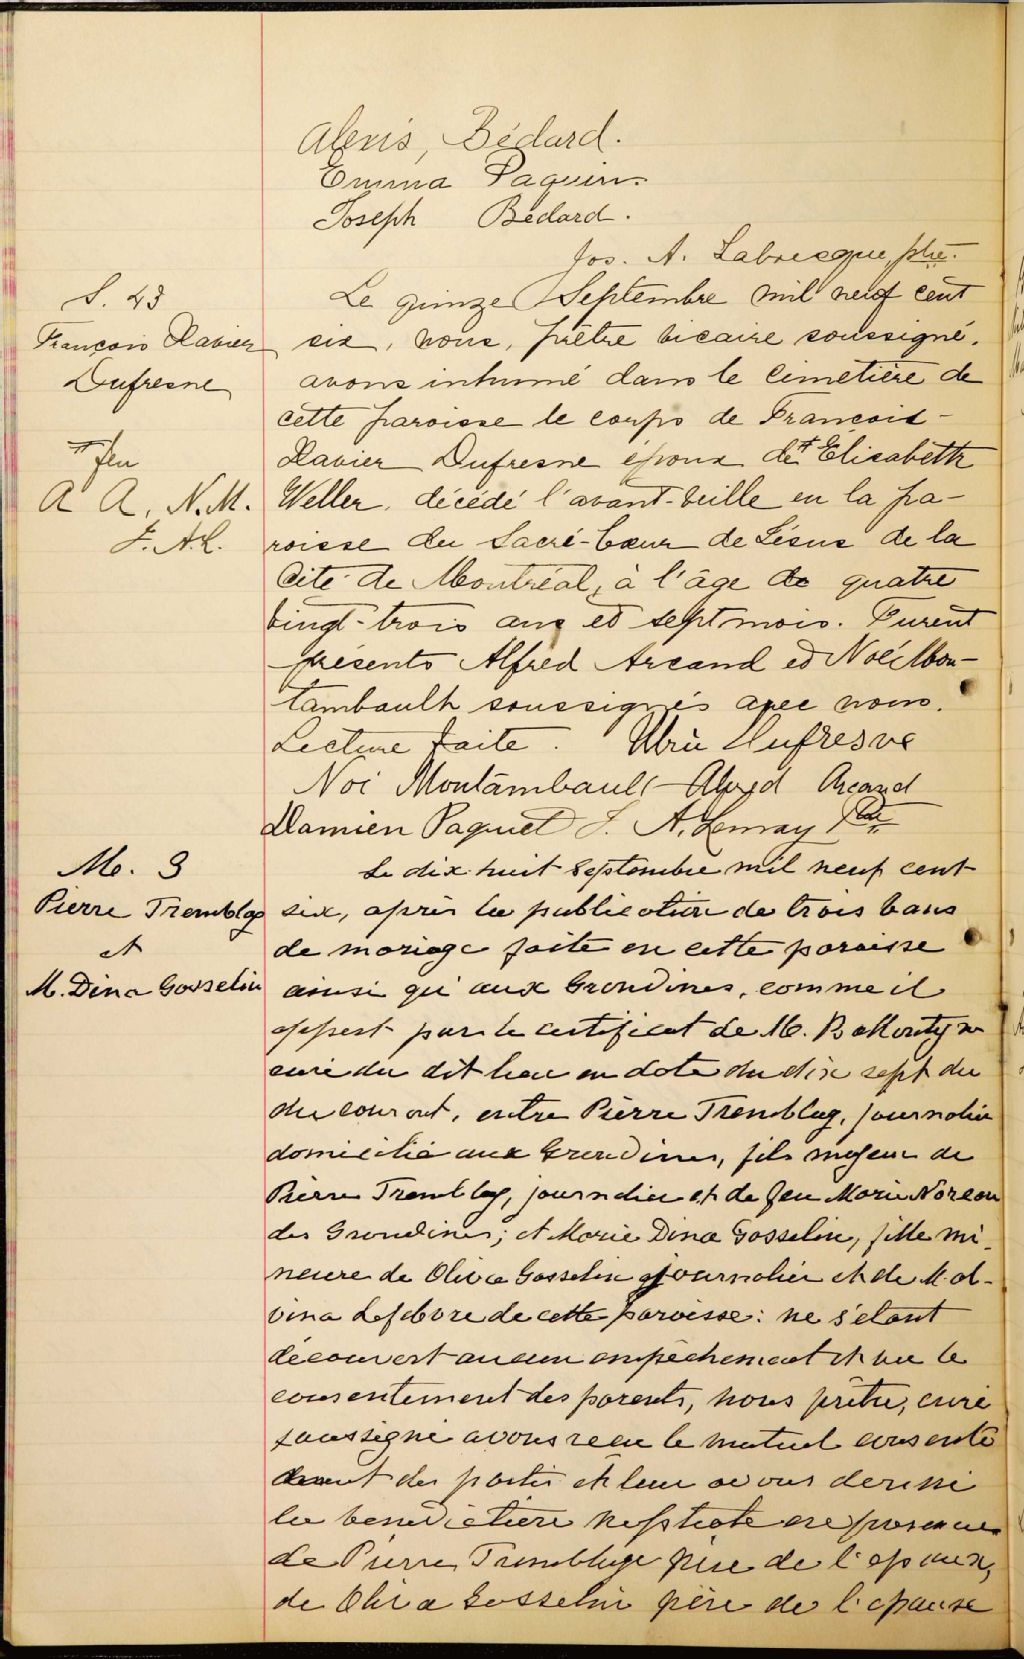 Alexis, Bédard.
Emma Paquin.
Joseph Bédard.
Jos. A. Labrecque, ptre.
S. 23
François Xavier
Dufresne
‡ feu
A A, N. M.
J. A. L.
Le quinze Septembre mil neuf cent
six, nous, prêtre vicaire soussigné,
avons inhumé dans le cimetière de
cette paroisse le corps de François-
Xavier Dufresne époux de ‡ Elisabeth
Weller, décédé l'avant-veille en la pa-
roisse du Sacré-Cœur de Jésus de la
Cité de Montréal, à l'âge de quatre
vingt-trois ans et sept mois. Furent
présents Alfred Arcand et Noé Mon-
tambault soussignés avec nous.
Lecture faite. Dufresne
Noé Montambault Alfred Arcand
Damien Paquet J. A. Lemay Ptre
M. 9
Pierre Tremblay
et
M. Dina Gosselin
Le dix huit Septembre mil neuf cent
six, après la publication de trois bans
de mariage faite en cette paroisse
ainsi qu'aux Grondines, comme il
appert par le certificat de M. Ballantyne
curé du dit lieu en date du dix sept du
du courant, entre Pierre Tremblay, journalier
domicilié aux Grondines, fils majeur de
Pierre Tremblay, journalier et de feu Marie Noreau
des Grondines; et Marie Dina Gosselin, fille mi-
neure de Oliva Gosselin journalier et de Mal-
vina Lefebvre de cette paroisse: ne s'étant
découvert aucun empêchement et vu le
consentement des parents, nous prêtre, curé
soussigné avons reçu le mutuel consente
ment des parties et leur avons donné
la bénédiction nuptiale en présence
de Pierre Tremblay père de l'epoux,
de Oliva Gosselin père de l'epouse